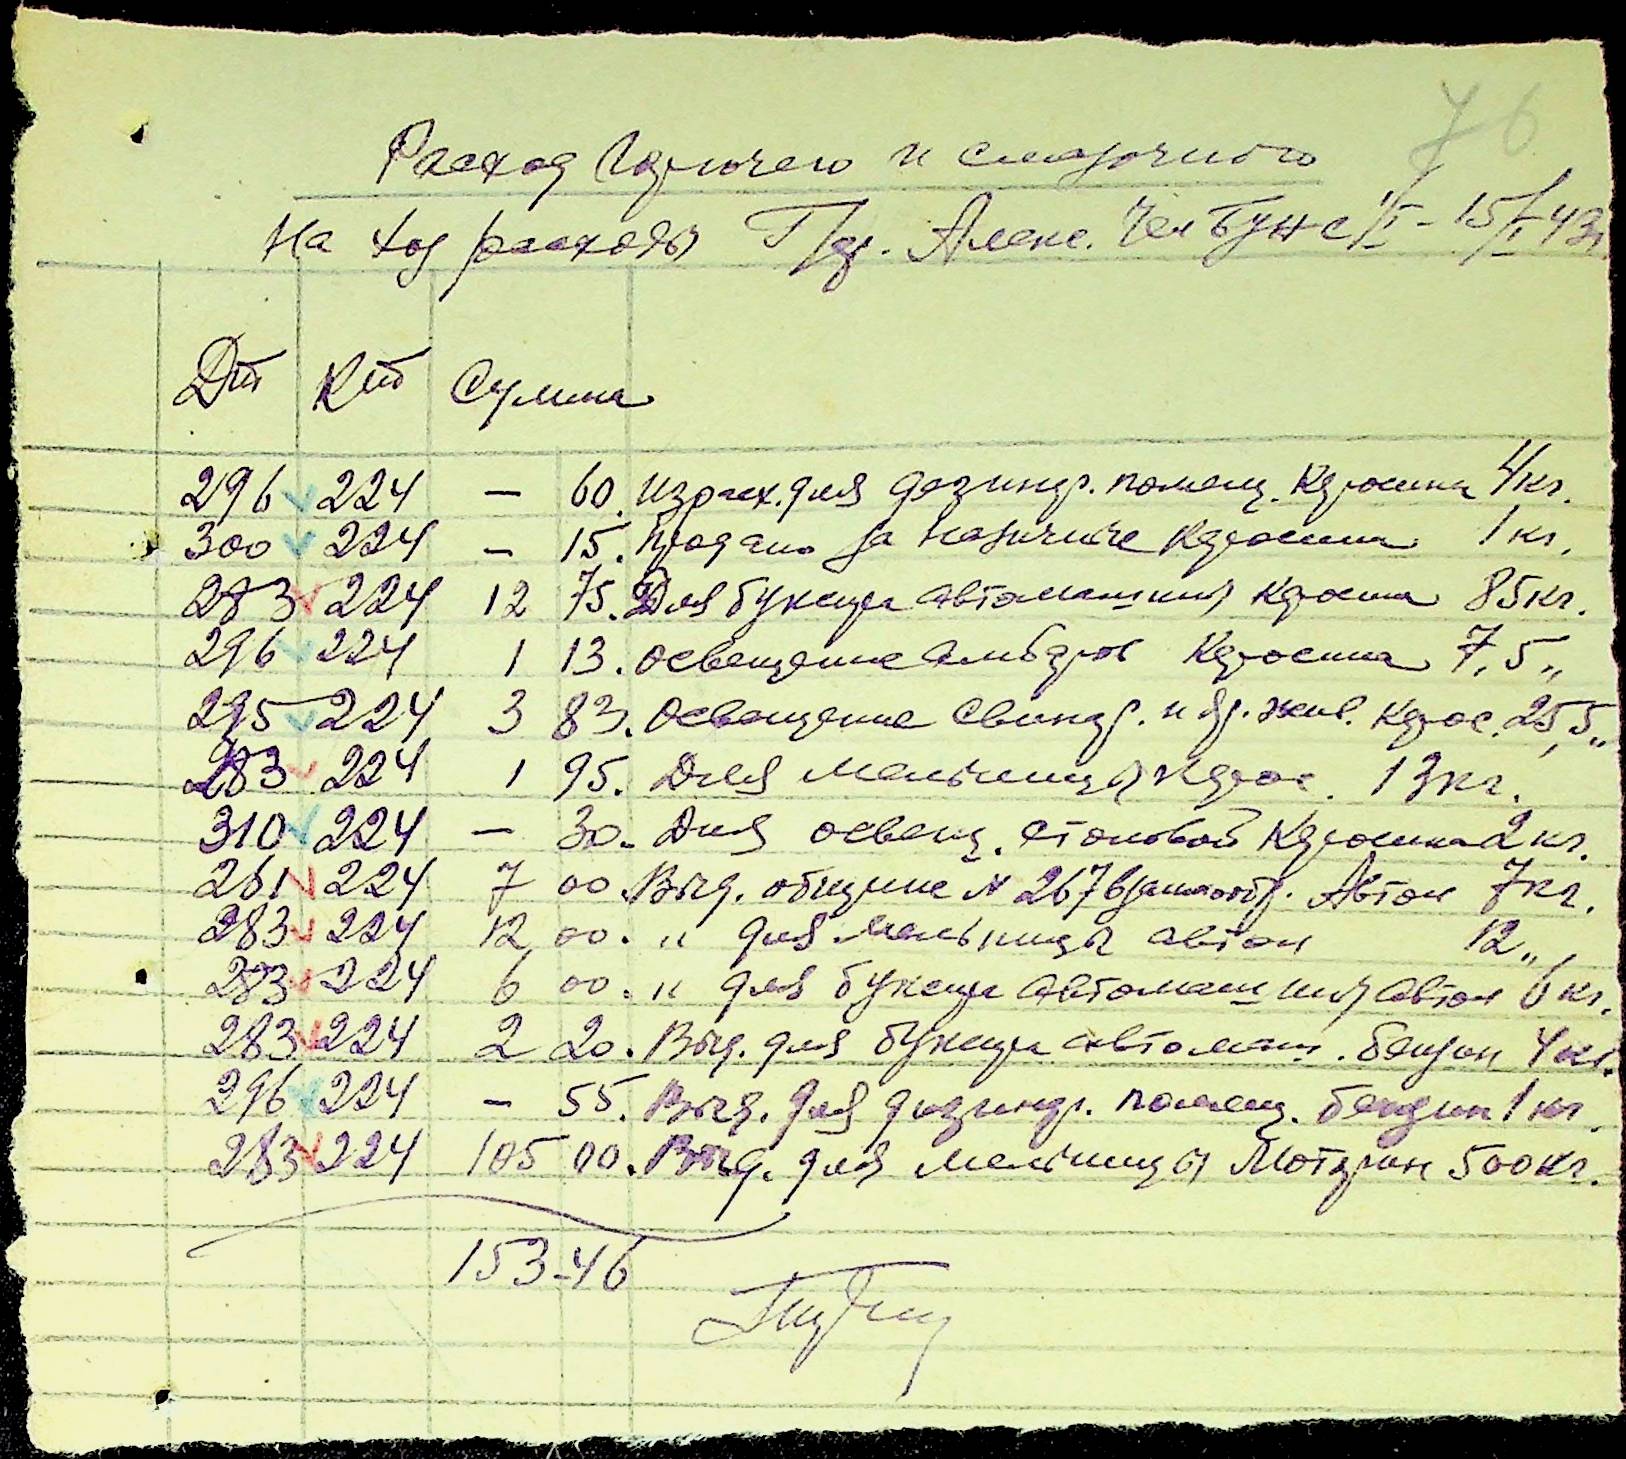 76
Расход Горючего и смазочного
На хоз расходы Г/др. Алекс. 1/I - 15/I 43г
Дт Кт Сумма
296 224 — 60. Израсх. для дезинф. помещ. Керосина 4кг.
300 224 — 15. Продано за наличные Керосина 1 кг.
283 224 12 75. Для буксира автомашины Кросина 85кг.
296 224 1 13. освещение амбаров Керосина 7,5 „
295 224 3 83. освещение свинар. и др. жив. Керос. 25,5 „
283 224 1 95. Для мельницы Керос. 13кг.
310 224 — 30. Для освещ. столовой Керосина 2 кг.
261 224 7 00. Выд. общине № 267 Автол 7кг.
283 224 12 00. " для мельницы автол 12 „
283 224 6 00. " для буксира автомашины автол 6 кг.
283 224 2 20. Выд. для буксира автомаш. бензин 4 кг.
296 224 — 55. Выд. для дезинф. помещ. бензин 1 кг.
283 224 105 00. Выд. для мельницы Моторин 500кг.
153-46